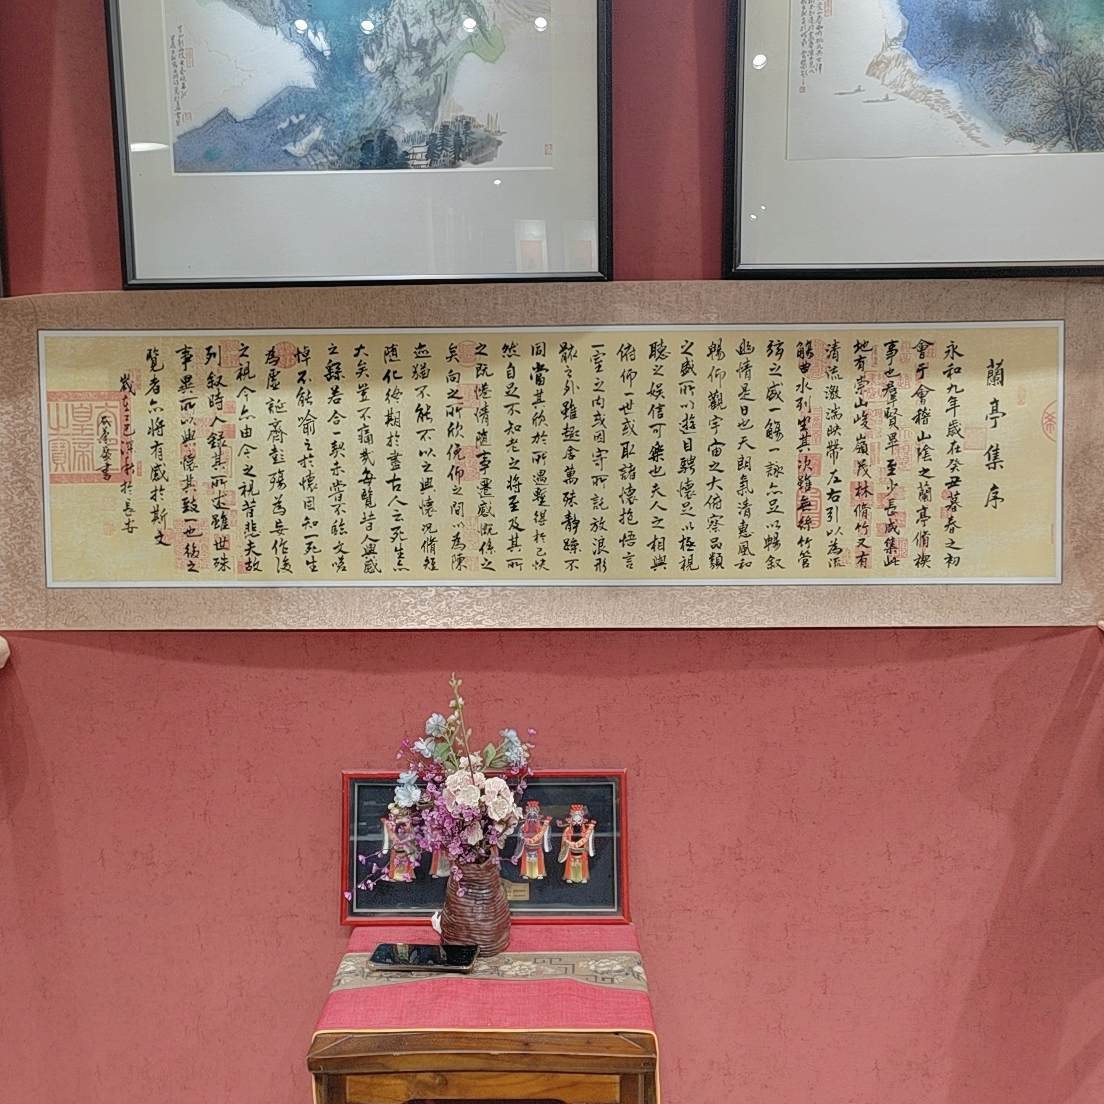 蘭亭集序
永和九年歲在癸丑暮春之初
會于會稽山陰之蘭亭脩禊
事也群賢畢至少長咸集此
地有崇山峻嶺茂林脩竹又有
清流激湍映帶左右引以為流
觴曲水列坐其次雖無絲竹管
弦之盛一觴一詠亦足以暢叙
幽情是日也天朗氣清惠風和
暢仰觀宇宙之大俯察品類
之盛所以遊目騁懷足以極視
聽之娛信可樂也夫人之相與
俯仰一世或取諸懷抱悟言
一室之內或因寄所託放浪形
骸之外雖趣舍萬殊靜躁不
同當其欣於所遇蹔得於己快
然自足不知老之將至及其所
之既惓情隨事遷感慨係之
矣向之所欣俛仰之間以為陳
迹猶不能不以之興懷況脩短
隨化終期於盡古人云死生亦
大矣豈不痛哉每覽昔人興感
之繇若合一契未嘗不臨文嗟
悼不能喻之於懷固知一死生
為虛誕齊彭殤為妄作後
之視今亦由今之視昔悲夫故
列叙時人錄其所述雖世殊
事異所以興懷其致一也後之
覽者亦將有感於斯文
歲在巳深秋於長安
書